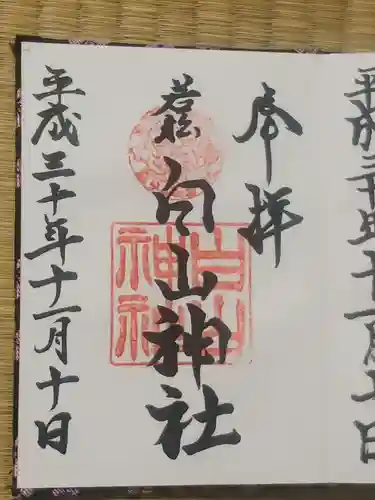 平成三十年十一月十日
奉拝
若松
白山神社
白山
神社
平成三十年十一月十日